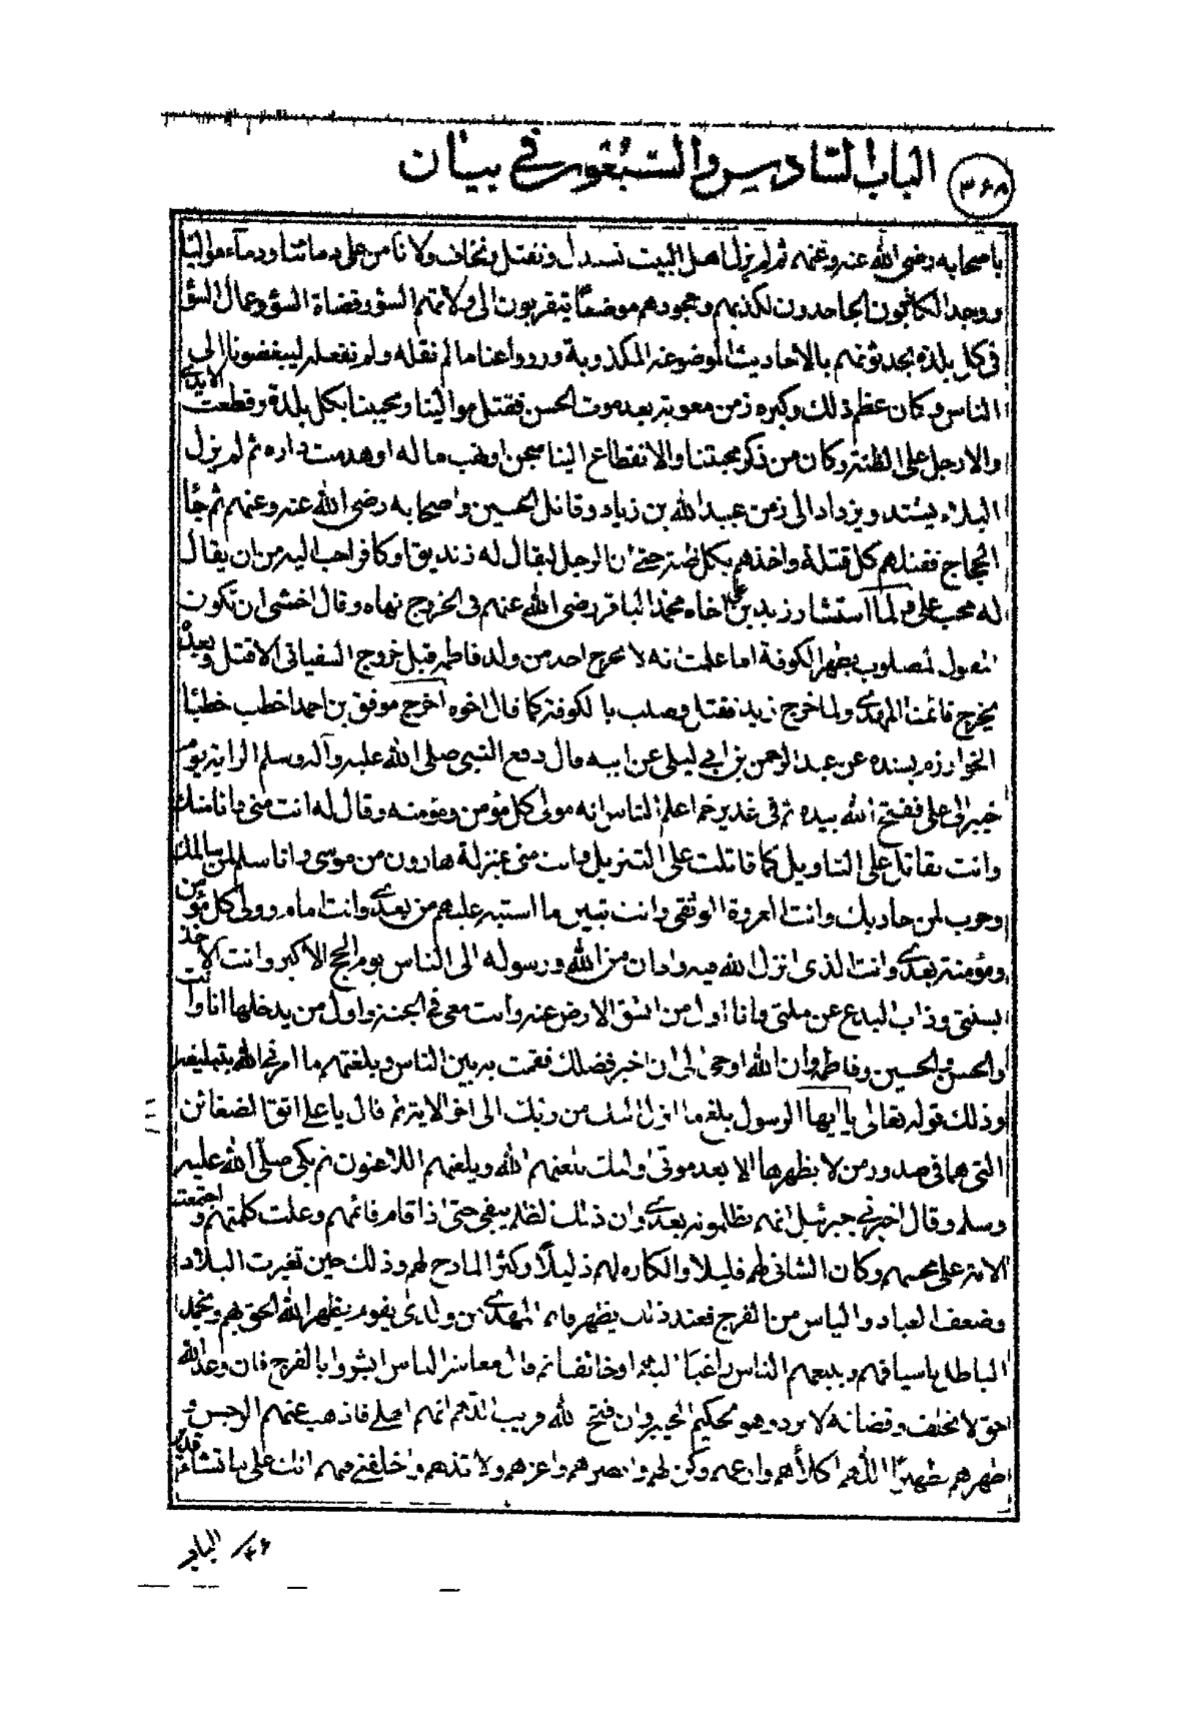 ٣٦٨ الباب السادس والسبعون في بيان
باصحابه رضى الله عنه وعنهم ثم لم نزل اهل البيت نستذل ونقتل ونخاف ولا نامن على دمائنا ودماء موالينا
ووجد الكاذبون الجاحدون لكذبهم وجحودهم موضعا يتقربون الى ولاتهم السؤ وقضاة السؤ وعمال السؤ
فى كل بلدة يحدثونهم بالاحاديث الموضوعة المكذوبة ورووا عنا ما لم نقله ولم نفعله ليبغضونا الى
الناس وكان عظم ذلك وكبره زمن معوية بعد موت الحسن فقتل موالينا ومحبينا بكل بلدة وقطعت الايدى
والارجل على الظنة وكان من ذكر محبتنا والانقطاع الينا سجن او نهب ماله او هدمت داره ثم لم يزل
البلاء يشتد ويزداد الى زمن عبيد الله بن زياد وقاتل الحسين واصحابه رضى الله عنه وعنهم ثم جاء
الحجاج فقتلهم كل قتلة واخذهم بكل ظنة حتى ان الرجل ليقال له زنديق او كافر احب اليه من ان يقال
له محب على ولما استشار زيد بن على اخاه محمد الباقر رضى الله عنهم فى الخروج نهاه وقال اخشى ان تكون
المقتول المصلوب بظهر الكوفة اما علمت انه لا يخرج احد من ولد فاطمة قبل خروج السفيانى الا قتل وبعده
يخرج قائمنا المهدى ولما خرج زيد فقتل وصلب بالكوفة كما قال اخوه اخرج موفق بن احمد اخطب خطباء
الخوارزم بسنده عن عبد الرحمن بن ابى ليلى عن ابيه قال دفع النبى صلى الله عليه وآله وسلم الراية يوم
خيبر الى على ففتح الله بيده ثم فى غدير خم اعلم الناس انه مولى كل مؤمن ومؤمنة وقال له انت منى وانا منك
وانت تقاتل على التاويل كما قاتلت على التنزيل وانت منى بمنزلة هارون من موسى وانا سلم لمن سالمك
وحرب لمن حاربك وانت العروة الوثقى وانت تبين ما اشتبه عليهم من بعدى وانت امام وولى كل مؤمن
ومؤمنة بعدى وانت الذى انزل الله فيه واذان من الله ورسوله الى الناس يوم الحج الاكبر وانت الاخذ
بسنتى وذاب البدع عن ملتى وانا اول من انشق الارض عنه وانت معى فى الجنة واول من يدخلها انا وانت
والحسن والحسين وفاطمة وان الله اوحى الى ان اخبر فضلك فقمت به بين الناس وبلغتهم ما امرنى الله بتبليغه
وذلك قوله تعالى يا ايها الرسول بلغ ما انزل اليك من ربك الى اخر الاية ثم قال يا على اتق الضغائن
التى هى فى صدور من لا يظهرها الا بعد موتى اولئك يلعنهم الله ويلعنهم اللاعنون ثم بكى صلى الله عليه
وسلم وقال اخبرنى جبرئيل انهم يظلمونه بعدى وان ذلك الظلم يبقى حتى اذا قام قائمهم وعلت كلمتهم واجتمعت
الامة على محبتهم وكان الشانى لهم قليلا والكاره لهم ذليلا وكثر المادح لهم وذلك حين تغيرت البلاد
وضعف العباد والياس من الفرج فعند ذلك يظهر قائم المهدى من ولدى بقوم يظهر الله الحق بهم ويخمد
الباطل باسيافهم ويتبعهم الناس راغبا اليهم او خائفا ثم قال معاشر الناس ابشروا بالفرج فان وعد الله
حق لا يخلف وقضائه لا يرد وهو الحكيم الخبير وان فتح الله قريب اللهم انهم اهلى فاذهب عنهم الرجس و
طهرهم تطهيرا اللهم اكلأهم وارعهم وكن لهم وانصرهم واعزهم ولا تذلهم واخلفنى فيهم انك على ما تشاء قدير